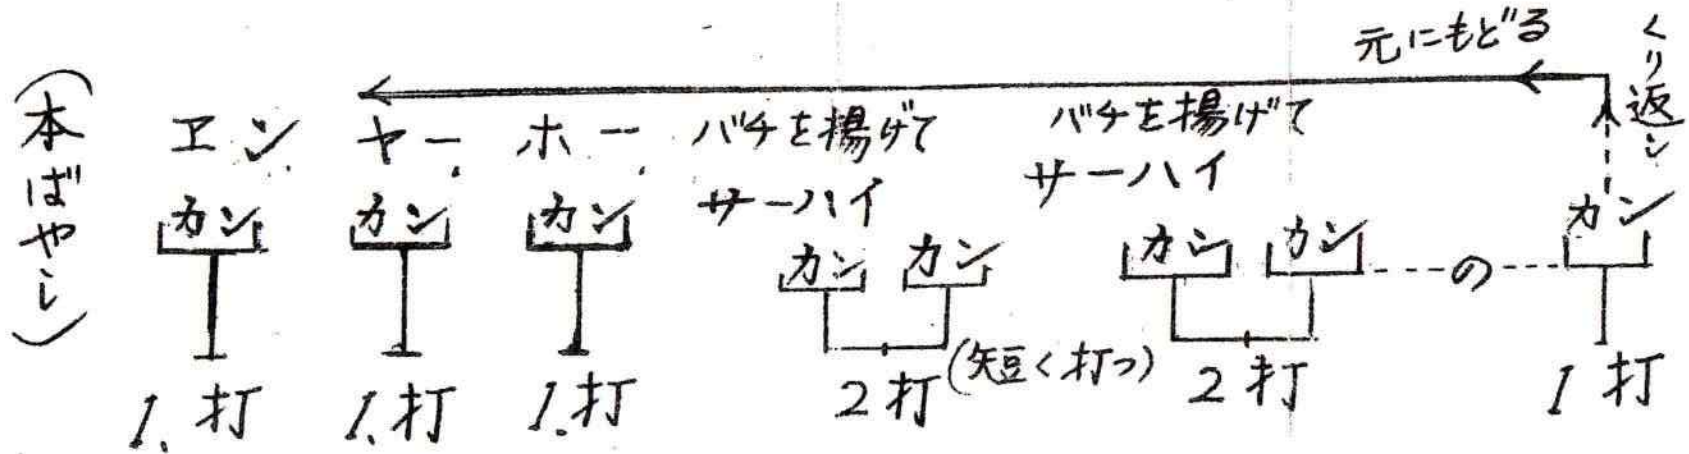 (本ばやし)
元にもどる
くり返し
エン ヤー ホー バチを揚げて バチを揚げて
サーハイ サーハイ
カン カン カン カン カン カン カン の カン
1.打 1.打 1.打 2打 (短く打つ) 2打 1打